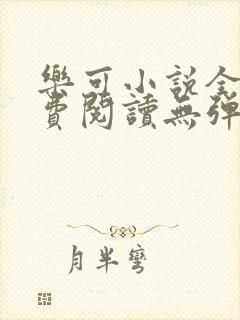 樂可小說全
費閱讀無彈
月半彎